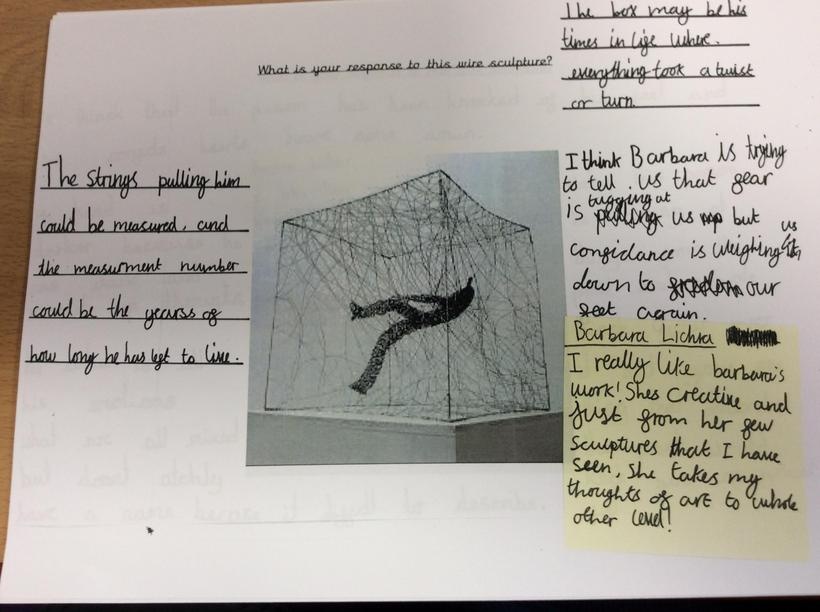 What is your response to this wire sculpture?
The box may be his
times in life where.
everything took a twist
or turn.
The strings pulling him
could be measured, and
the measurment number
could be the yearss of
how long he has left to live.
I think Barbara is trying
to tell us that fear
is tugging at us but
confidance is weighing us
down to our
feet again.
Barbara Lichra
I really like barbara's
work! Shes creative and
just from her few
sculptures that I have
seen, she takes my
thoughts of art to whole
other level!